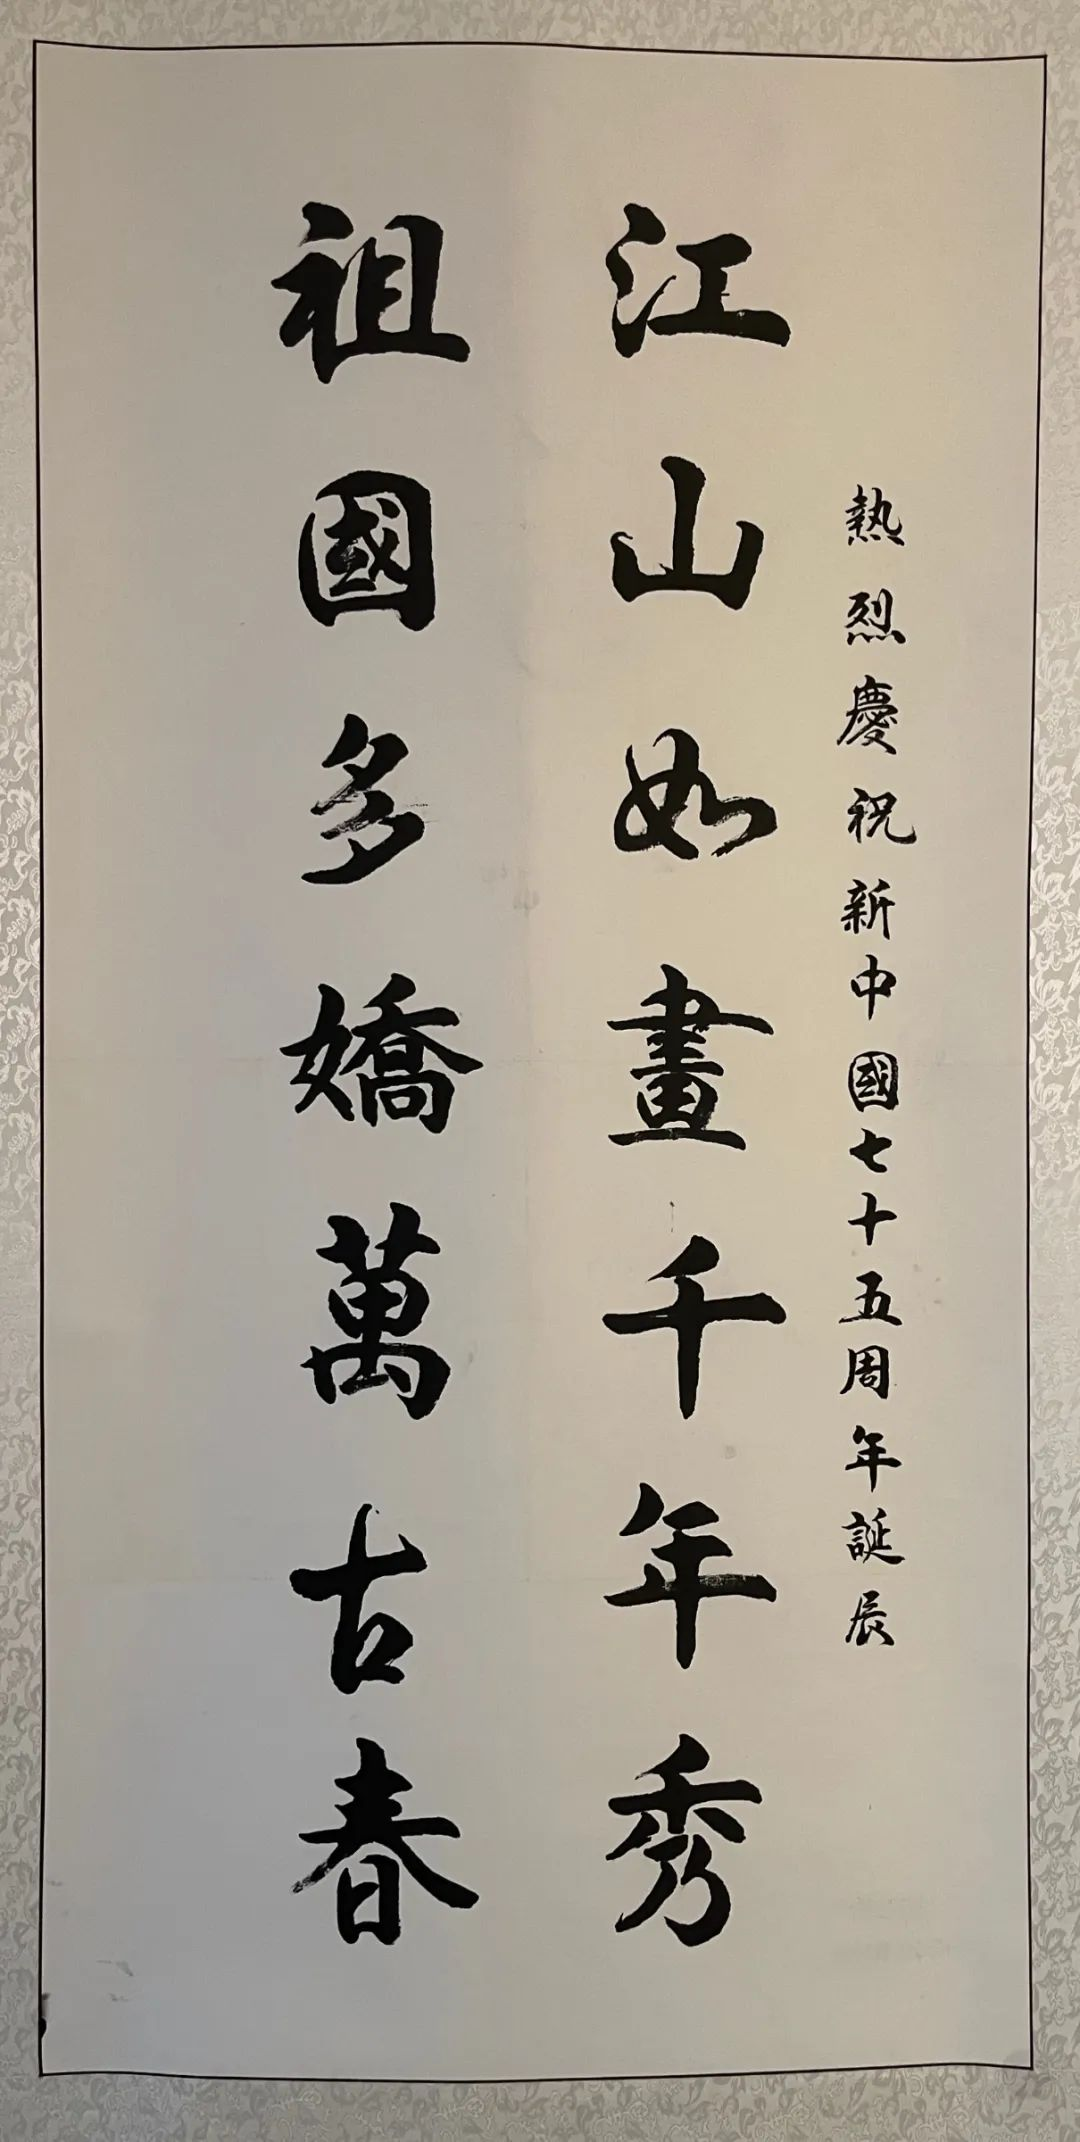 熱烈慶祝新中國七十五周年誕辰
江山如畫千年秀
祖國多嬌萬古春